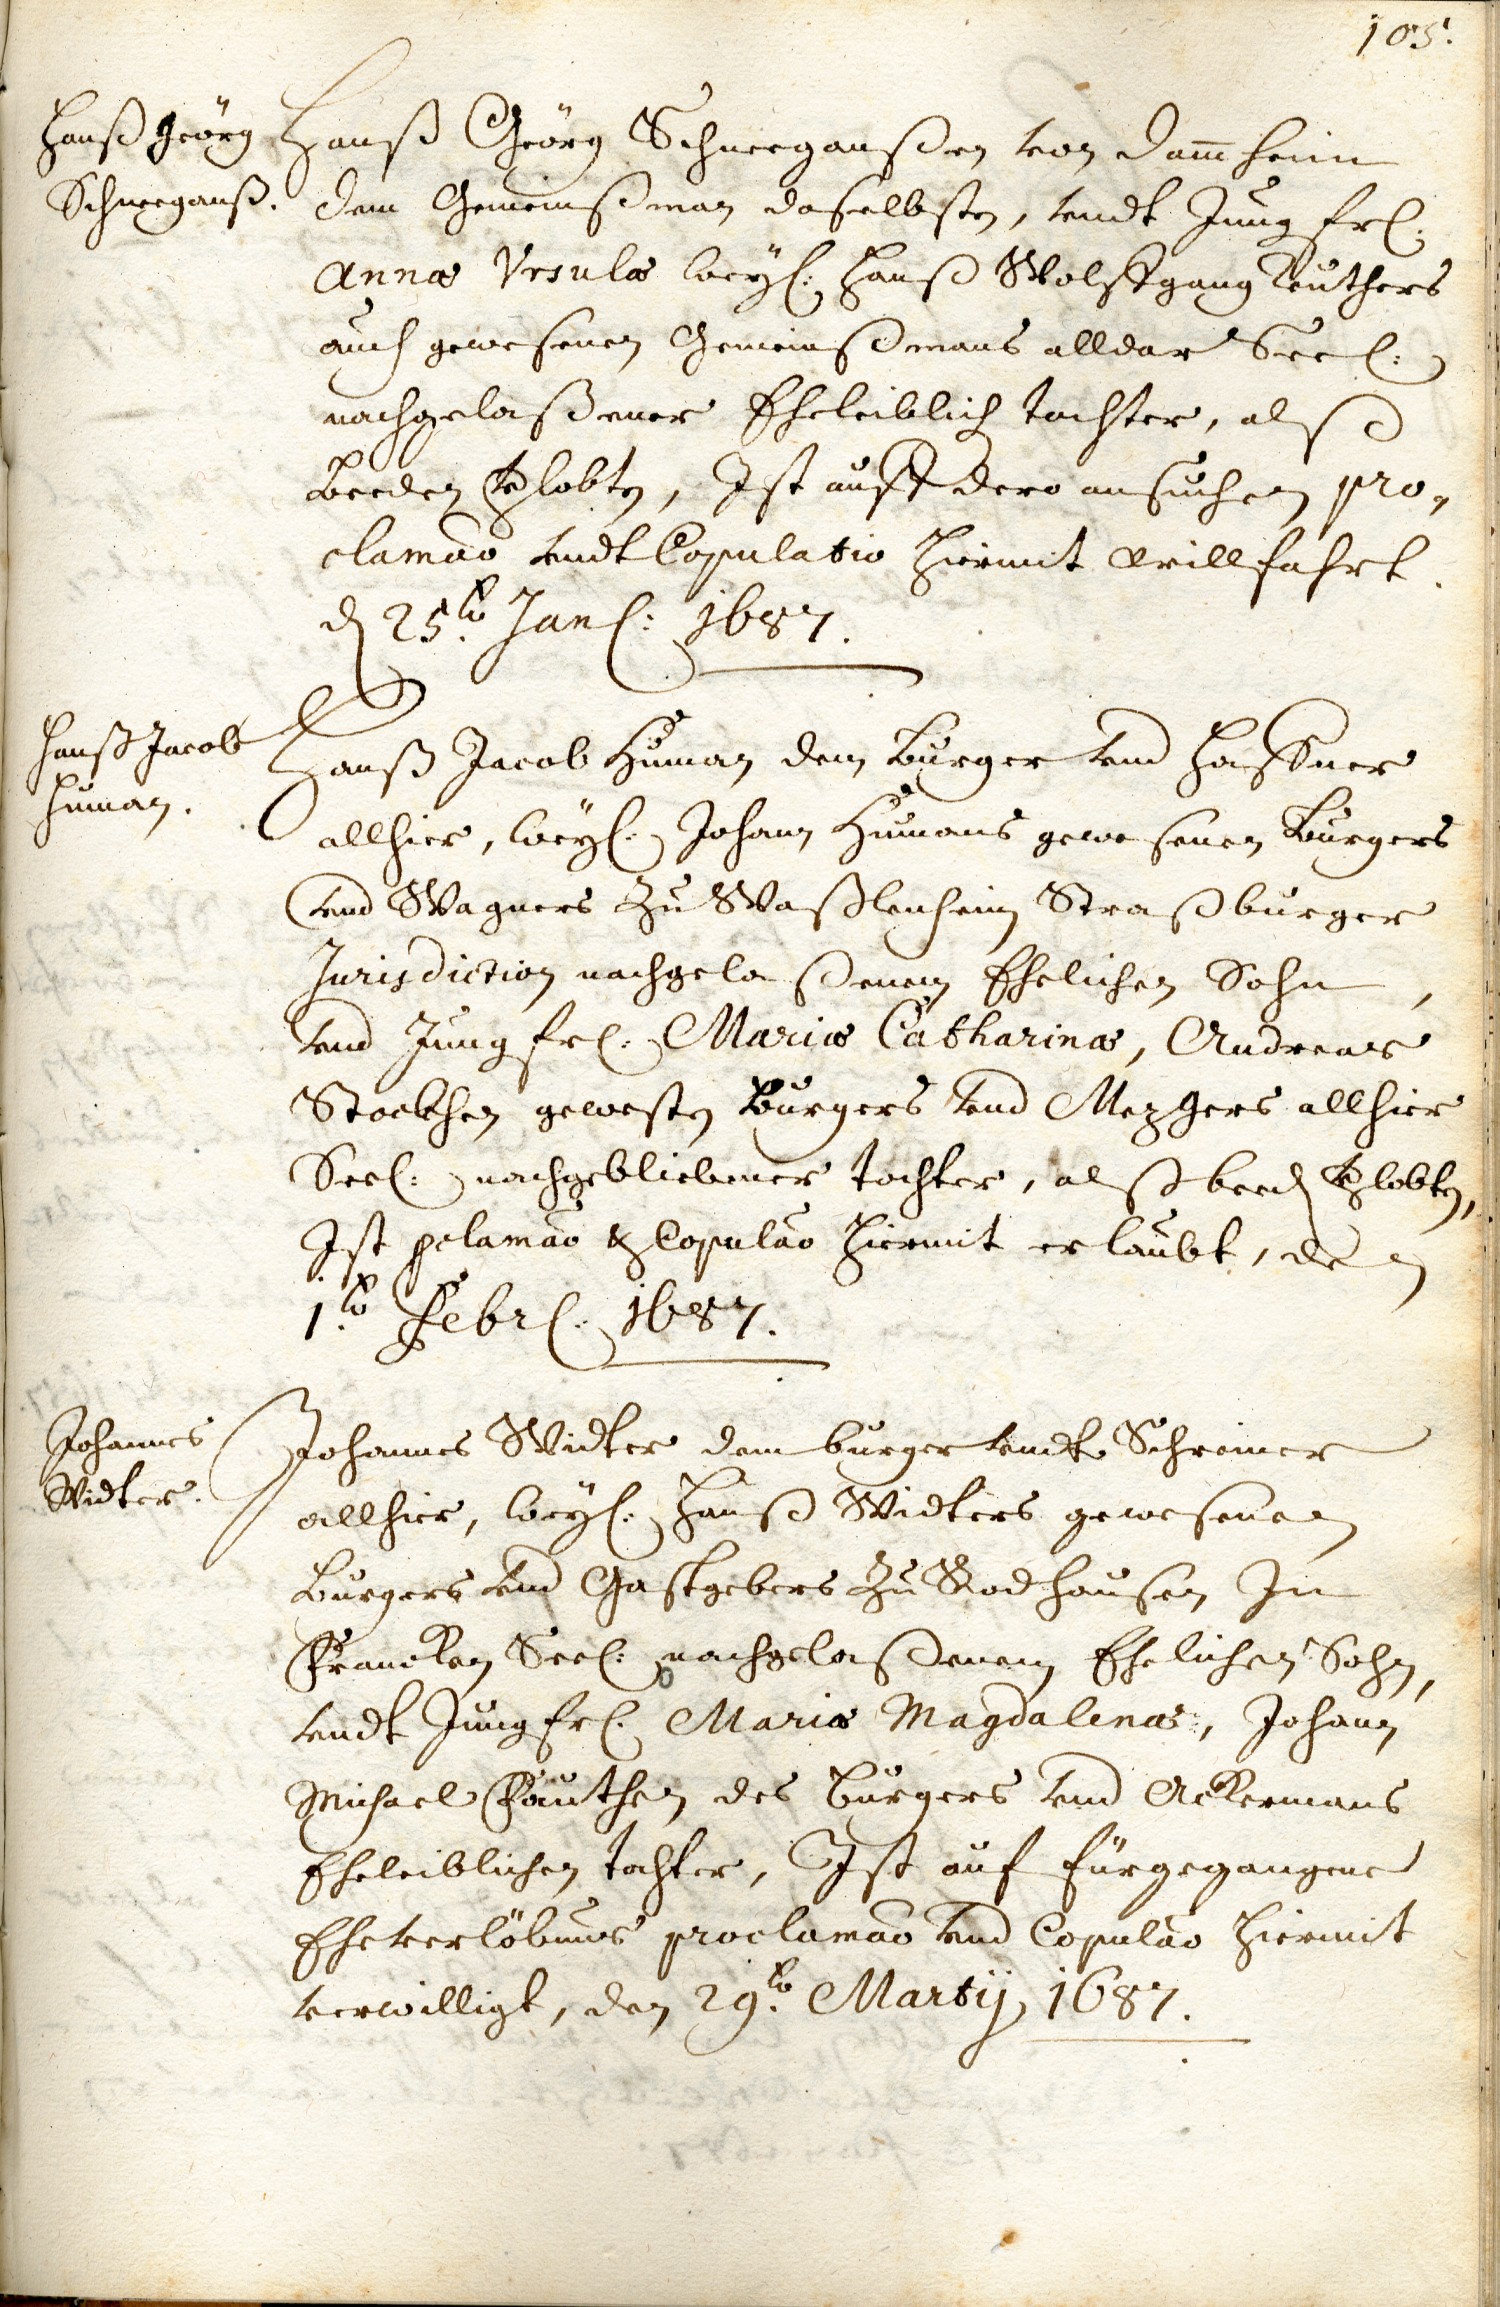 105.
Hanß Geörg
Schneeganß.
Hanß Geörg Schneeganßen von Dam̅heim
dem Gemeinßman daselbsten, vndt Jungfrl:
Annæ Vrsulæ weyl: Hanß Wolffgang Reuthers
auch gewesenen Gemeinßmans alldar Seel:
nachgelaßener Eheleiblich tochter, alß
beeden Vlobten, Ist auff dero ansuchen pro-
clamaõ vndt Copulatio hiermit willfahrt.
d 25.to Janl: 1687.
Hanß Jacob
Human.
Hanß Jacob Human dem Burger vnd Haffner
allhier, weyl: Johann Humans gewesenen Burgers
vnd Wagners Zu Waßlenheim Straßburger
Jurisdiction nachgelaßenem Ehelichen Sohn,
vnd Jungfrl: Mariæ Catharinæ, Andreas
Stoeckhen gewesten Burgers vnd Mezgers allhier
Seel: nachgebliebener tochter, alß beed Vlobten,
Ist pclamaõ & Copulaõ hiermit erlaubt, den
1.to Febrl: 1687.
Johannes
Widter.
Johannes Widter dem burger vndt Schreiner
allhier, weyl: Hanß Widters gewesenen
Burgers vnd Gastgebers Zu Rodhausen In
Francken Seel: nachgelaßenem Ehelichen Sohn,
vndt Jungfrl: Mariæ Magdalenæ, Johann
Michael Fauthen des Burgers vnd Ackermans
Eheleiblichen tochter, Ist auf fürgegangene
Eheverlöbnus proclamaõ vnd Copulaõ hiermit
verwilligt, den 29.to Martij 1687.